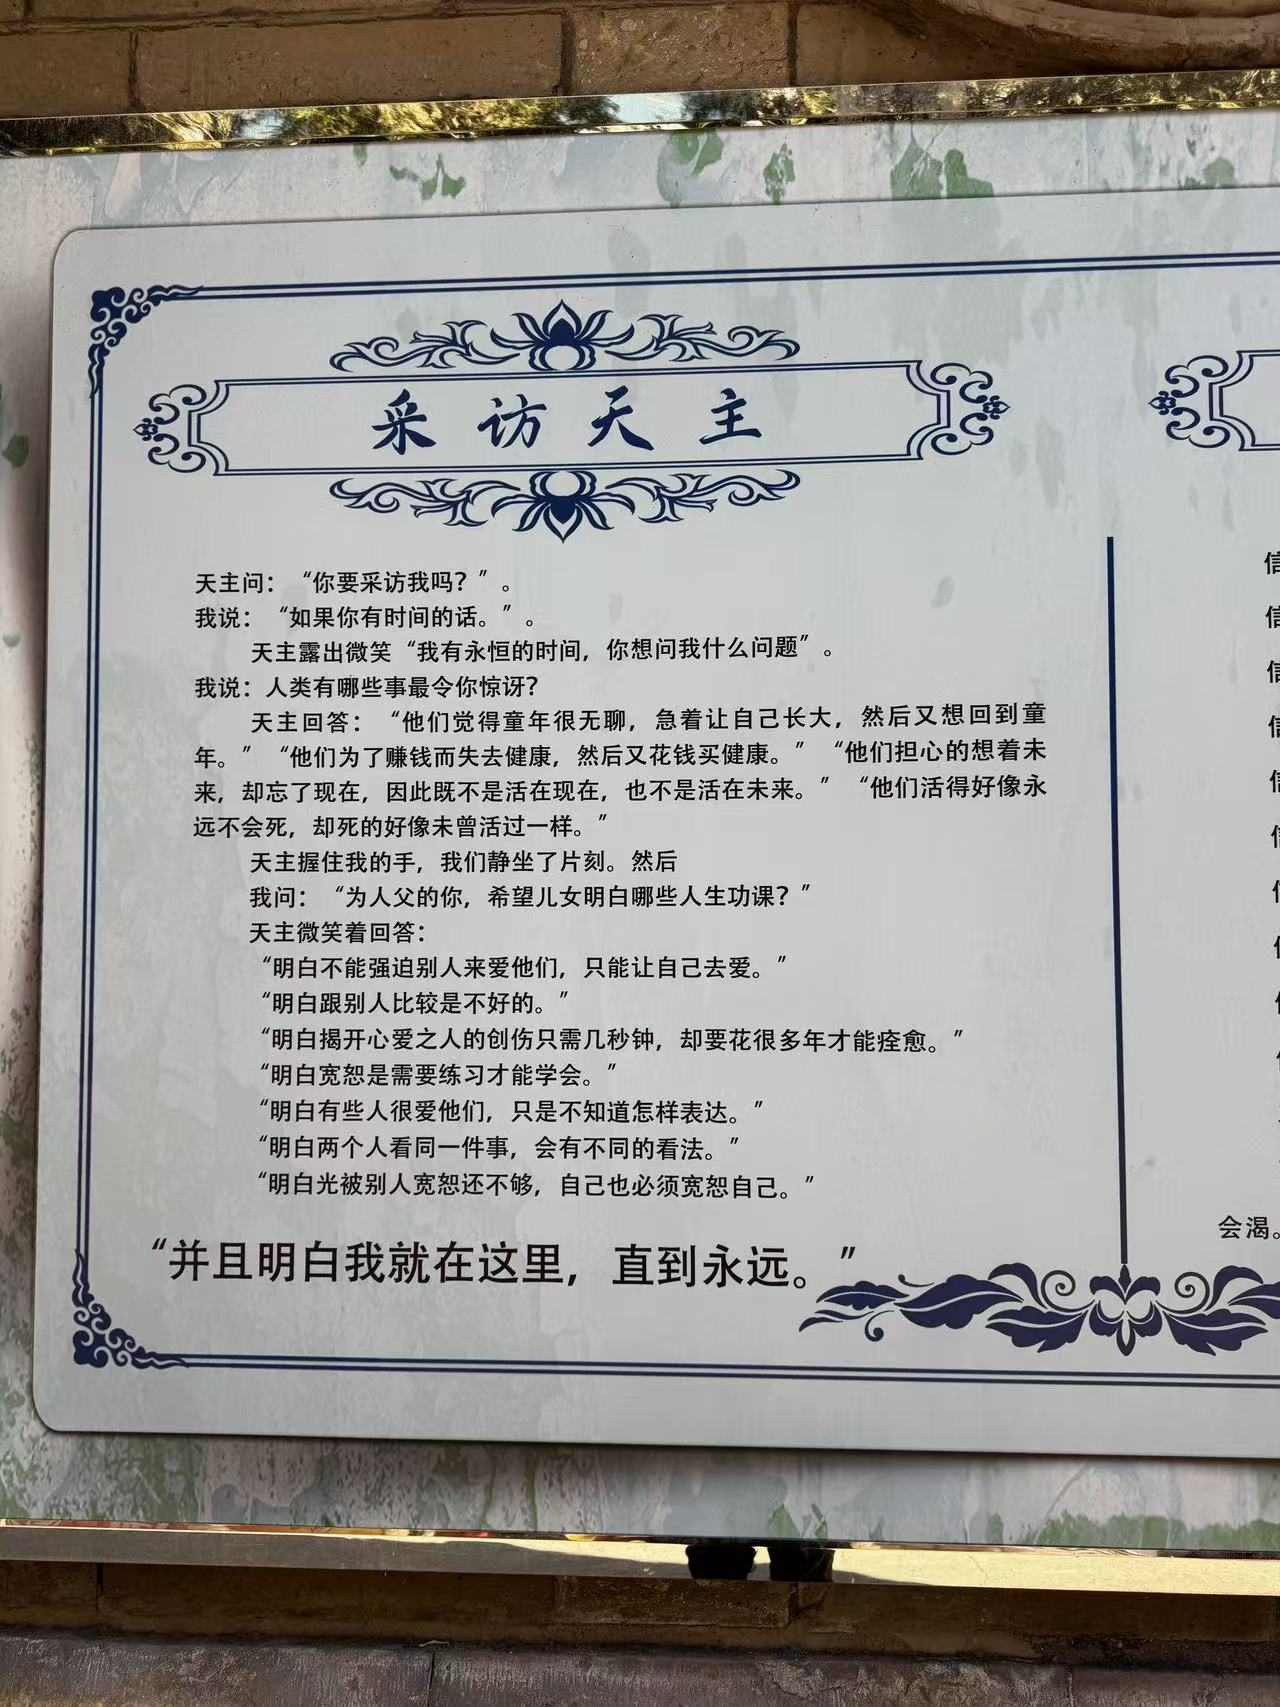 采访天主
天主问：“你要采访我吗？”。
我说：“如果你有时间的话。”。
天主露出微笑“我有永恒的时间，你想问我什么问题”。
我说：人类有哪些事最令你惊讶？
天主回答：“他们觉得童年很无聊，急着让自己长大，然后又想回到童
年。”“他们为了赚钱而失去健康，然后又花钱买健康。”“他们担心的想着未
来，却忘了现在，因此既不是活在现在，也不是活在未来。”“他们活得好像永
远不会死，却死的好像未曾活过一样。”
天主握住我的手，我们静坐了片刻。然后
我问：“为人父的你，希望儿女明白哪些人生功课？”
天主微笑着回答：
“明白不能强迫别人来爱他们，只能让自己去爱。”
“明白跟别人比较是不好的。”
“明白揭开心爱之人的创伤只需几秒钟，却要花很多年才能痊愈。”
“明白宽恕是需要练习才能学会。”
“明白有些人很爱他们，只是不知道怎样表达。”
“明白两个人看同一件事，会有不同的看法。”
“明白光被别人宽恕还不够，自己也必须宽恕自己。”
“并且明白我就在这里，直到永远。”
信
信
信
信
信
信
会渴。